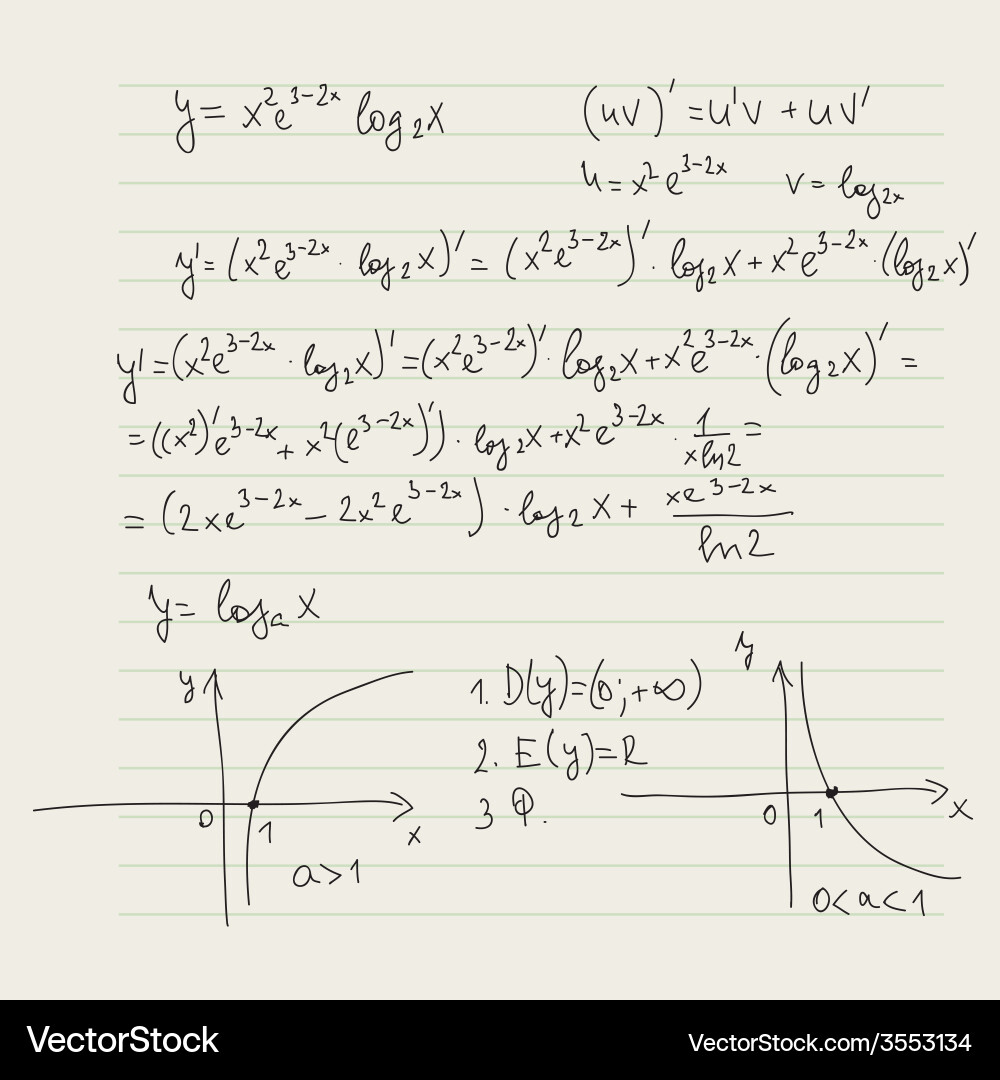 y = x²e³⁻²ˣ log₂x (uv)' = u'v + uv'
u = x²e³⁻²ˣ v = log₂ₓ
y' = (x²e³⁻²ˣ · log₂x)' = (x²e³⁻²ˣ)' · log₂x + x²e³⁻²ˣ · (log₂x)'
y' = (x²e³⁻²ˣ · log₂x)' = (x²e³⁻²ˣ)' · log₂x + x²e³⁻²ˣ · (log₂x)' =
= ((x²)'e³⁻²ˣ + x²(e³⁻²ˣ)')) · log₂x + x²e³⁻²ˣ · 1/(x ln2) =
= (2xe³⁻²ˣ − 2x²e³⁻²ˣ) · log₂x + xe³⁻²ˣ/ln2
y = logₐx
y
0
1
x
a > 1
1. D(y)=(0;+∞)
2. E(y)=R
3 Φ.
y
0
1
x
0 < a < 1
VectorStock VectorStock.com/3553134